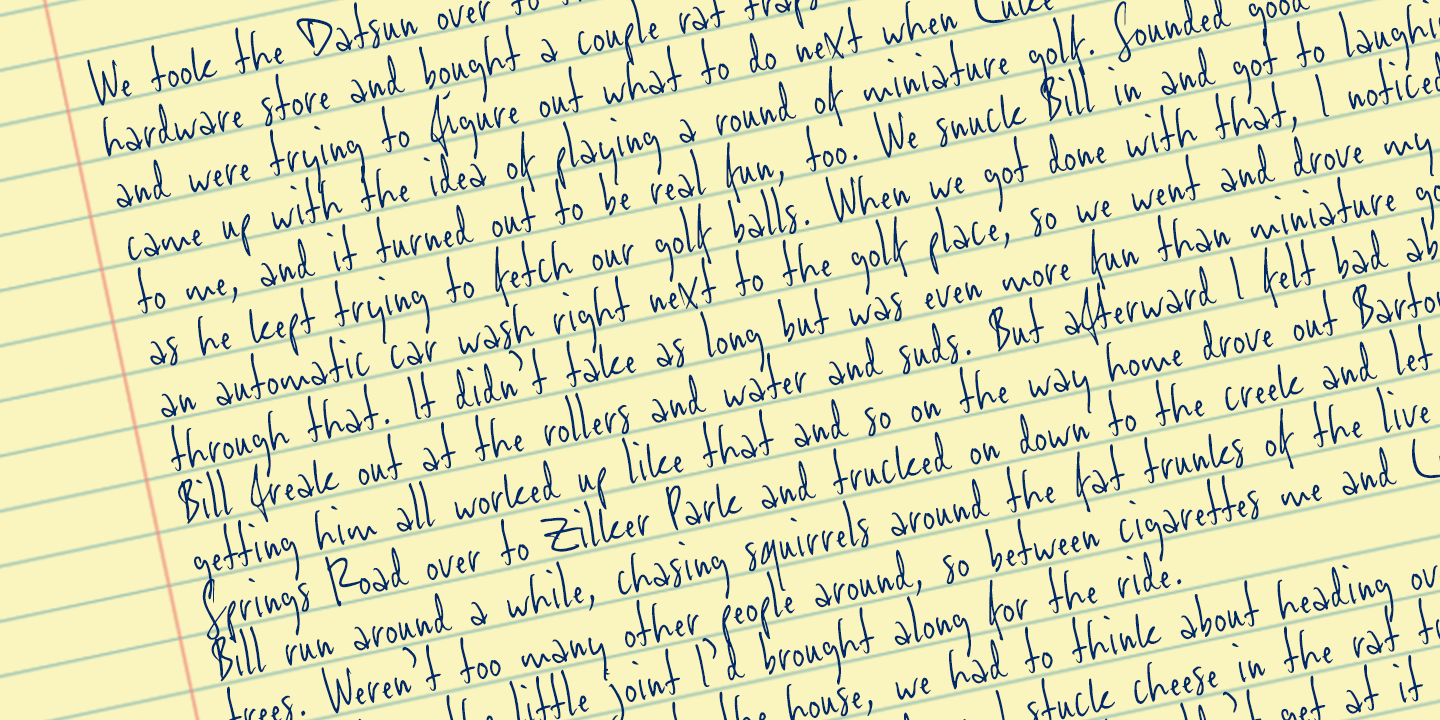 We took the Datsun over to
hardware store and bought a couple rat traps
and were trying to figure out what to do next when Luke
came up with the idea of playing a round of miniature golf. Sounded good
to me, and it turned out to be real fun, too. We snuck Bill in and got to laughi
as he kept trying to fetch our golf balls. When we got done with that, I noticed
an automatic car wash right next to the golf place, so we went and drove my
through that. It didn't take as long but was even more fun than miniature go
Bill freak out at the rollers and water and suds. But afterward I felt bad ab
getting him all worked up like that and so on the way home drove out Barto
Springs Road over to Zilker Park and trucked on down to the creek and let
Bill run around a while, chasing squirrels around the fat trunks of the live
trees. Weren't too many other people around, so between cigarettes me and
little joint I'd brought along for the ride.
the house, we had to think about heading ov
stuck cheese in the rat tr
get at it